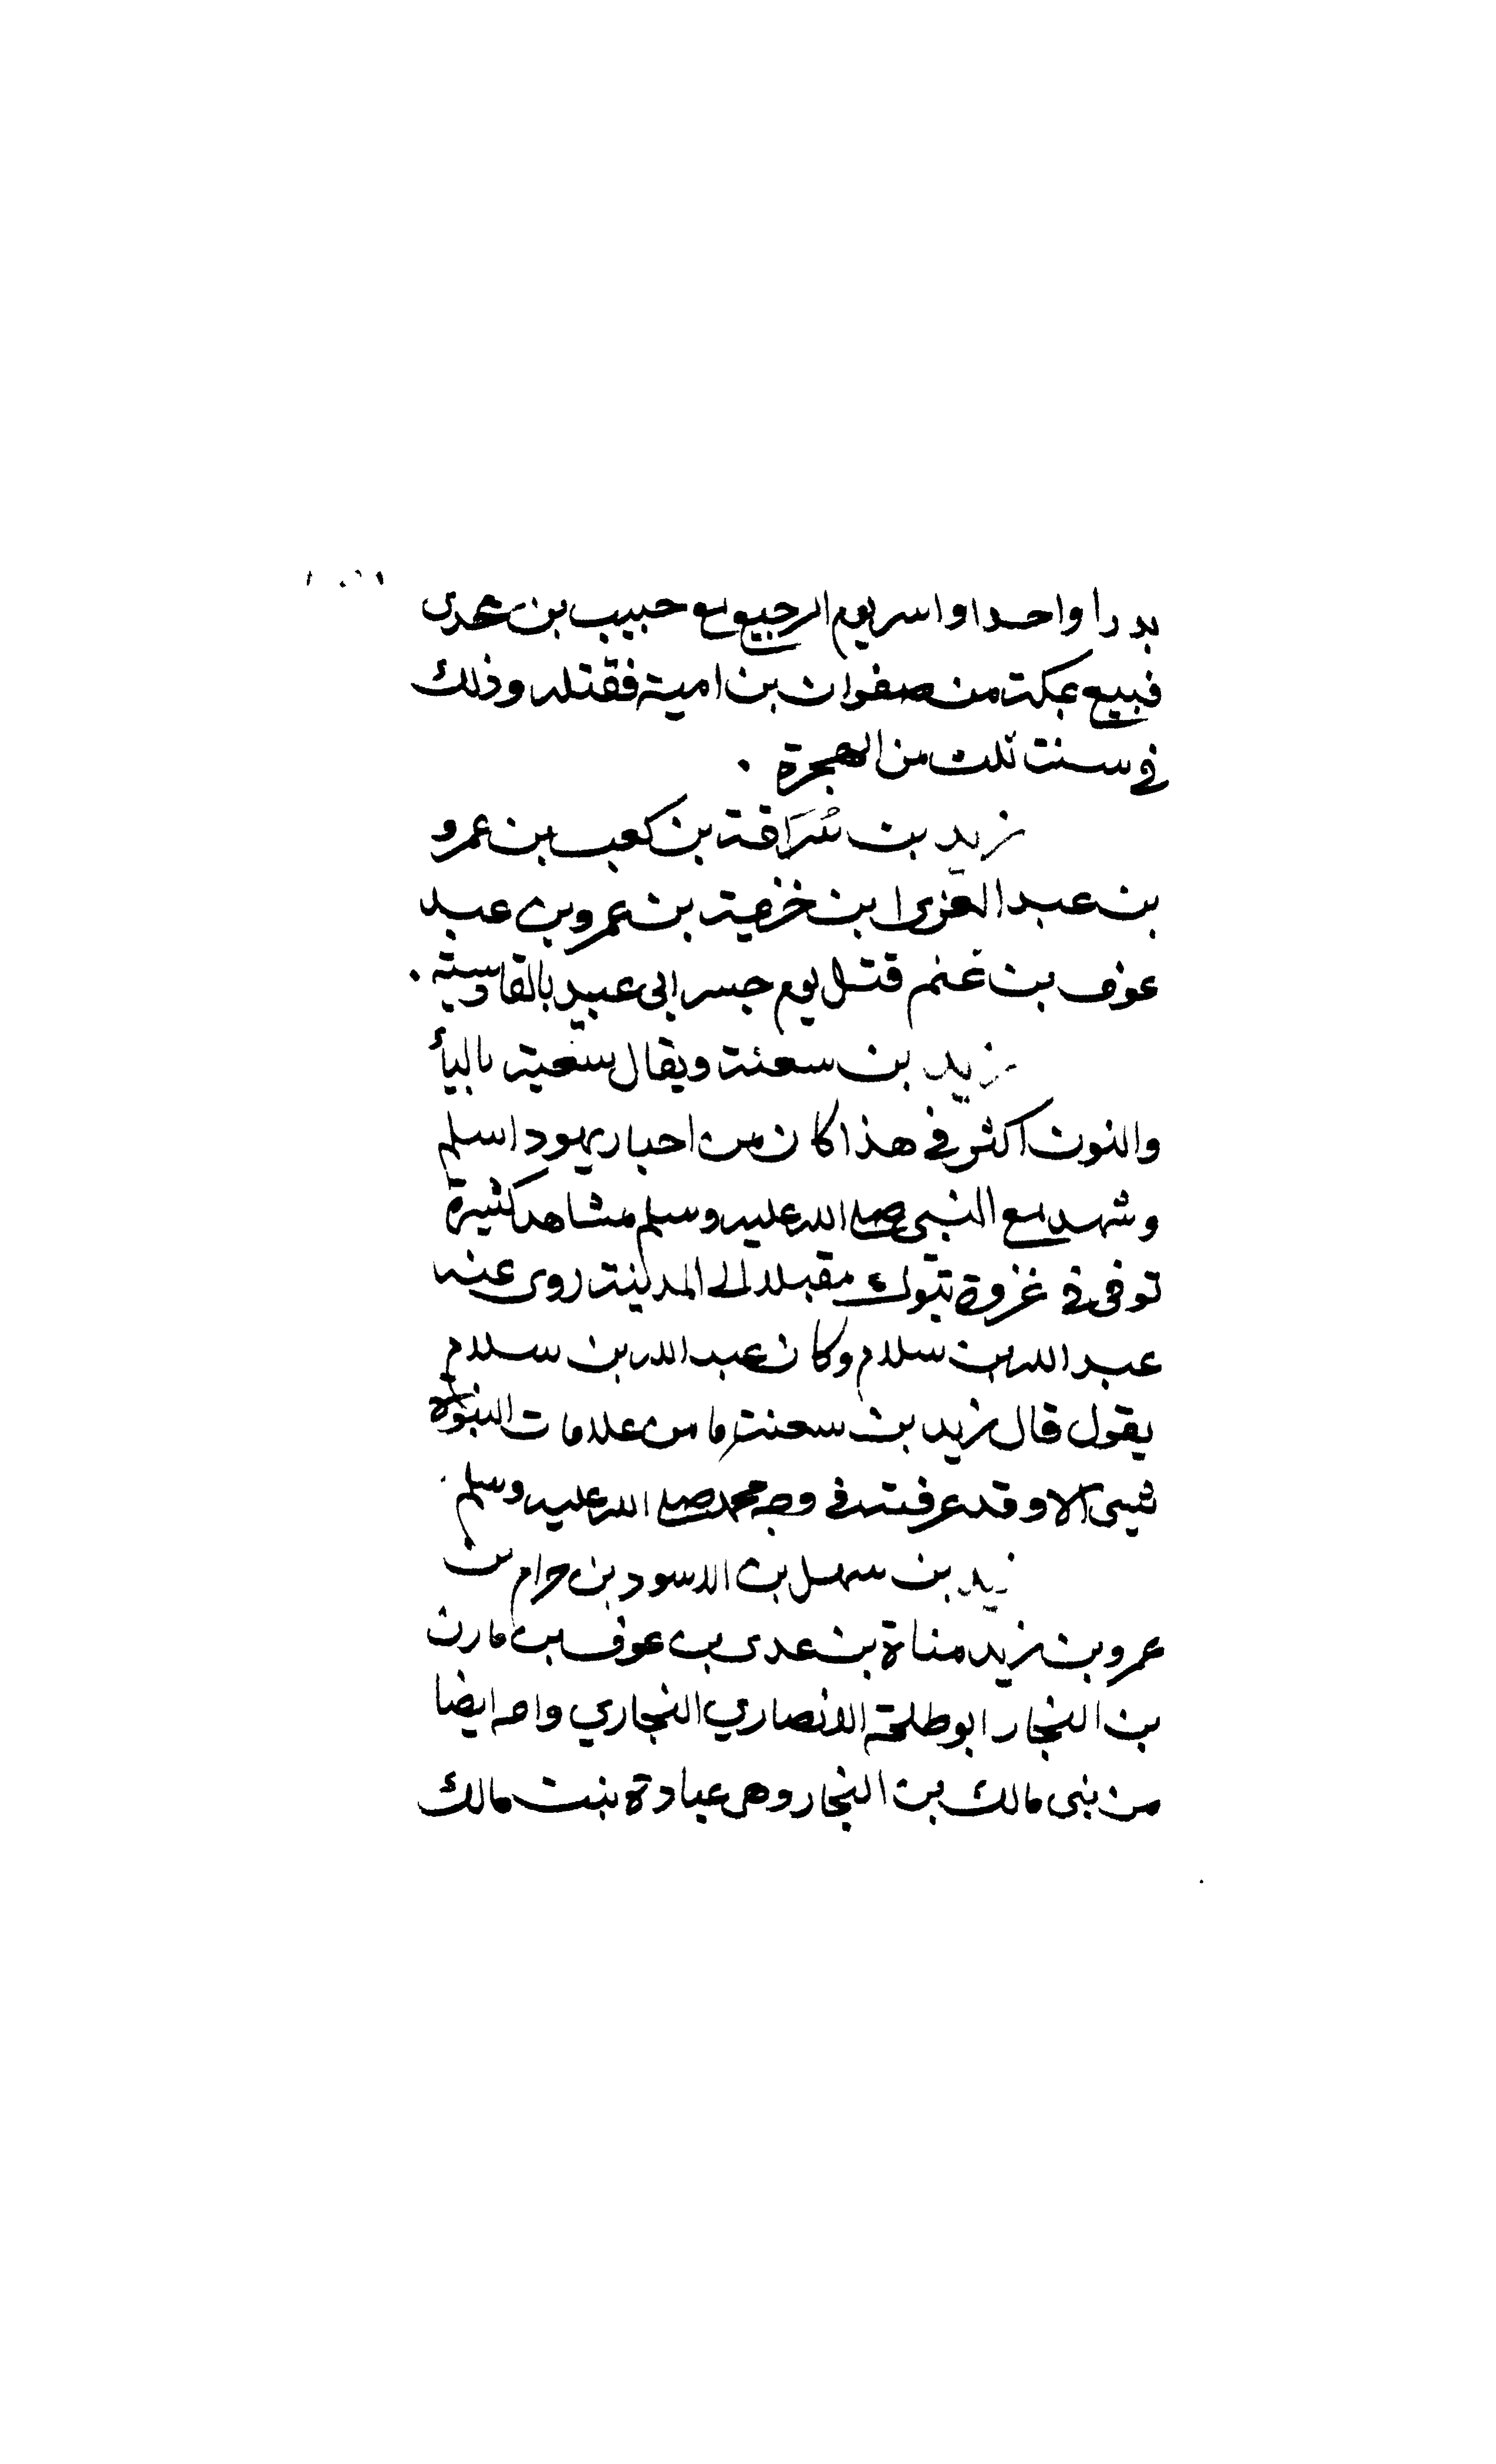 بدرا واحدا واسر يوم الرجيع مع حبيب بن عدى
فبيع بمكة من صفوان بن امية فقتله وذلك
في سنة ثلث من الهجرة .
زيد بن سُرَاقة بن كعب بن عمرو
بن عبد العزى ا بن خزمية بن عمرو بن عبد
عوف بن غنم قتل يوم جسر ابى عبيد بالقادسية .
زيد بن سعنة ويقال سعية باليأ
والنون اكثر في هذا كان من احبار يهود اسلم
وشهد مع النبى صلى الله عليه وسلم مشاهد كثيرة
توفى في غزوة تبوك مقبلا الى المدينة روى عنه
عبد الله بن سلام وكان عبد الله بن سلام
يقول قال زيد بن سعنة ما من علامات النبوة
شيى الا وقد عرفته في وجه محمد صلى الله عليه وسلم
زيد بن سهل بن الاسود بن حرام بن
عمرو بن زيد مناة بن عدى بن عوف بن مارن
بن النجار ابو طلحة الانصاري النجاري وامه ايضا
من بنى مالك بن النجار وهى عبادة بنت مالك